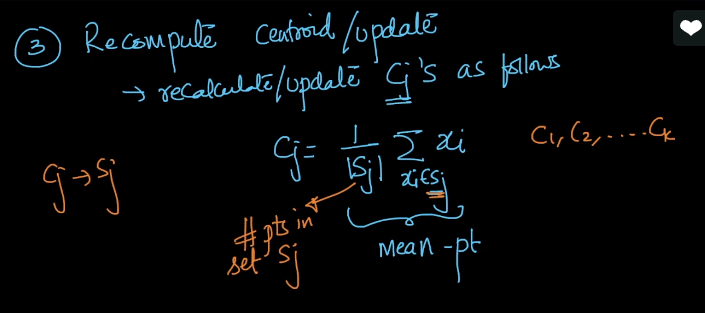 ③ Recompute centroid/update
→ recalculate/update Cj's as follows
Cj = 1/|Sj| Σ xi∈Sj xi
C1, C2, ..... Ck
Cj → Sj
# pts in
set Sj
Mean-pt